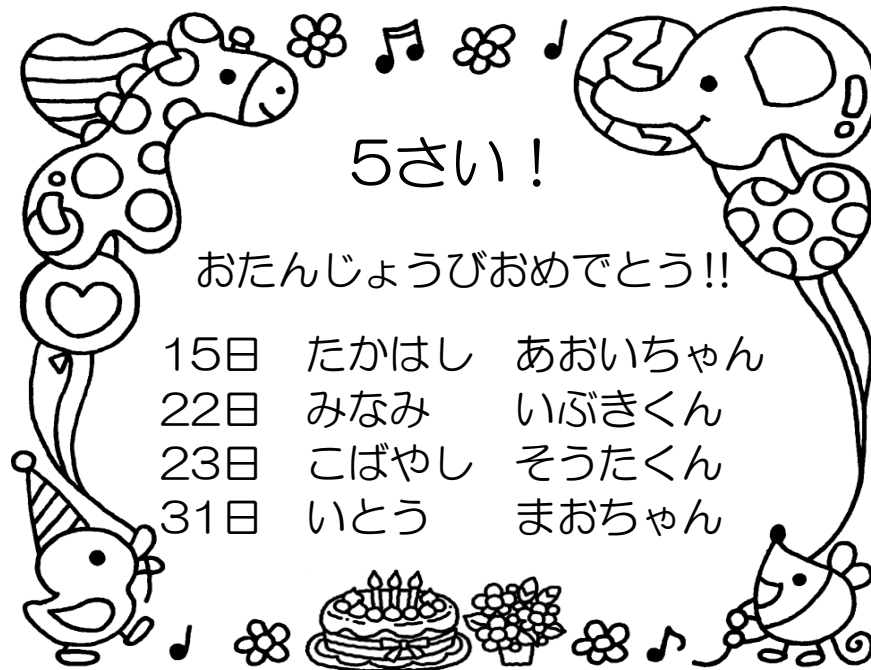 5さい！
おたんじょうびおめでとう!!
15日　たかはし　あおいちゃん
22日　みなみ　　いぶきくん
23日　こばやし　そうたくん
31日　いとう　　まおちゃん